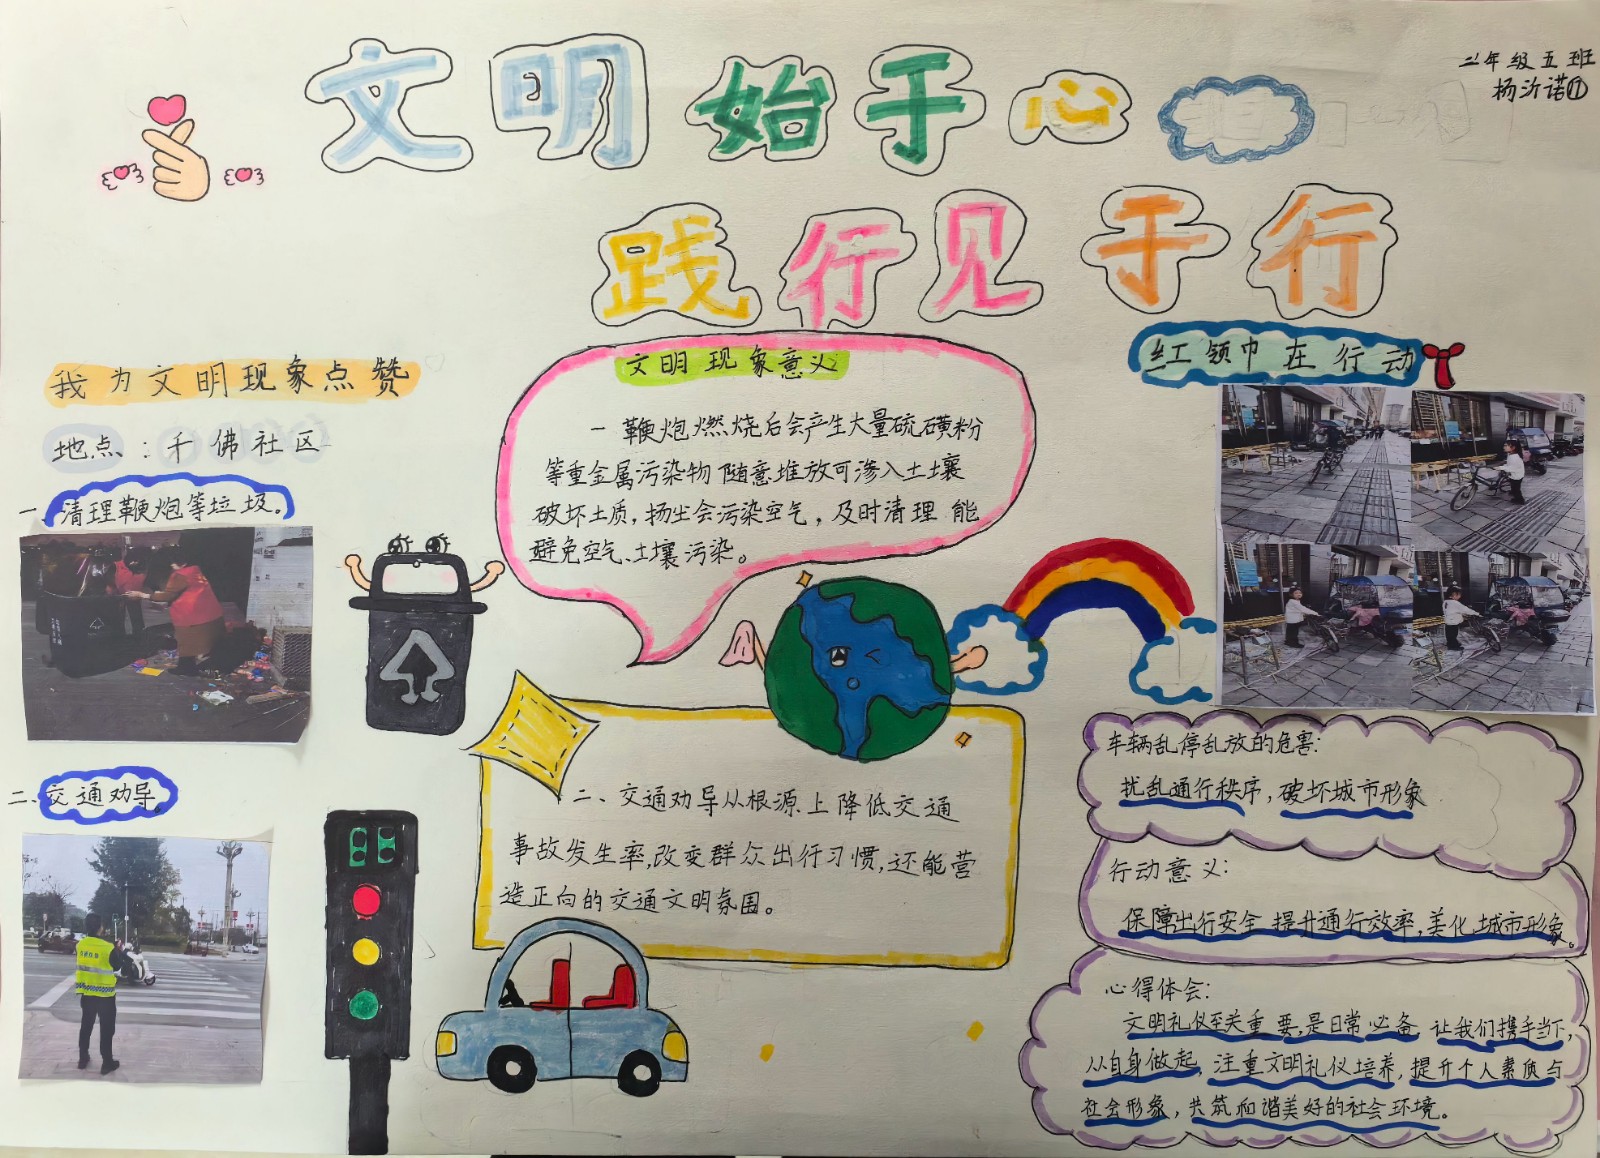 文明始于心
践行见于行
二年级五班
杨沂诺⑰
我为文明现象点赞
地点：千佛社区
一、清理鞭炮等垃圾。
二、交通劝导。
文明现象意义
一鞭炮燃烧后会产生大量硫磺粉
等重金属污染物随意堆放可渗入土壤
破坏土质，扬尘会污染空气，及时清理能
避免空气、土壤污染。
二、交通劝导从根源上降低交通
事故发生率，改变群众出行习惯，还能营
造正向的交通文明氛围。
红领巾在行动
车辆乱停乱放的危害：
扰乱通行秩序，破坏城市形象
行动意义：
保障出行安全 提升通行效率，美化城市形象。
心得体会：
文明礼仪至关重要，是日常必备 让我们携手当下，
从自身做起，注重文明礼仪培养，提升个人素质与
社会形象，共筑和谐美好的社会环境。